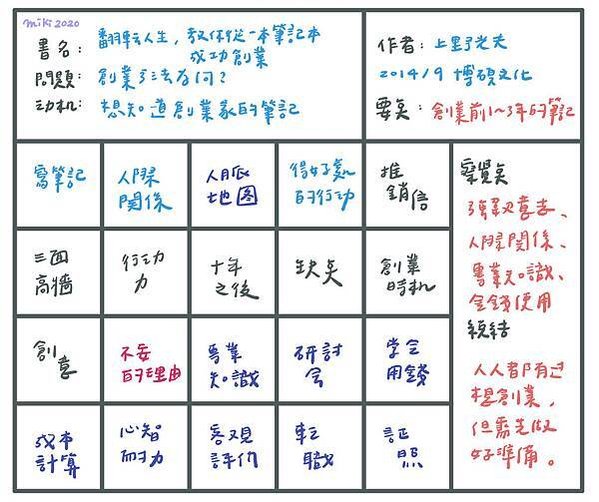 miki 2020
書名：翻転人生，教你從一本筆記本
成功創業
問題：創業方法為何？
动机：想知道創業家的筆記
作者：上野光夫
2014/9 博碩文化
要矣：創業前1~3年的筆記
寫筆記
人際
關係
人脈
地图
得好感
的行动
推
銷信
三面
高牆
行动
力
十年
之後
缺矣
創業
時机
創
意
不妥
的理由
專業
知識
研討
会
学会
用錢
成本
計算
心智
耐力
客观
評价
転
職
証
照
察覺矣
強烈意志、
人際關係、
專業知識、
金錢使用
總結
人人都有过
想創業，
但需先做
好準備。